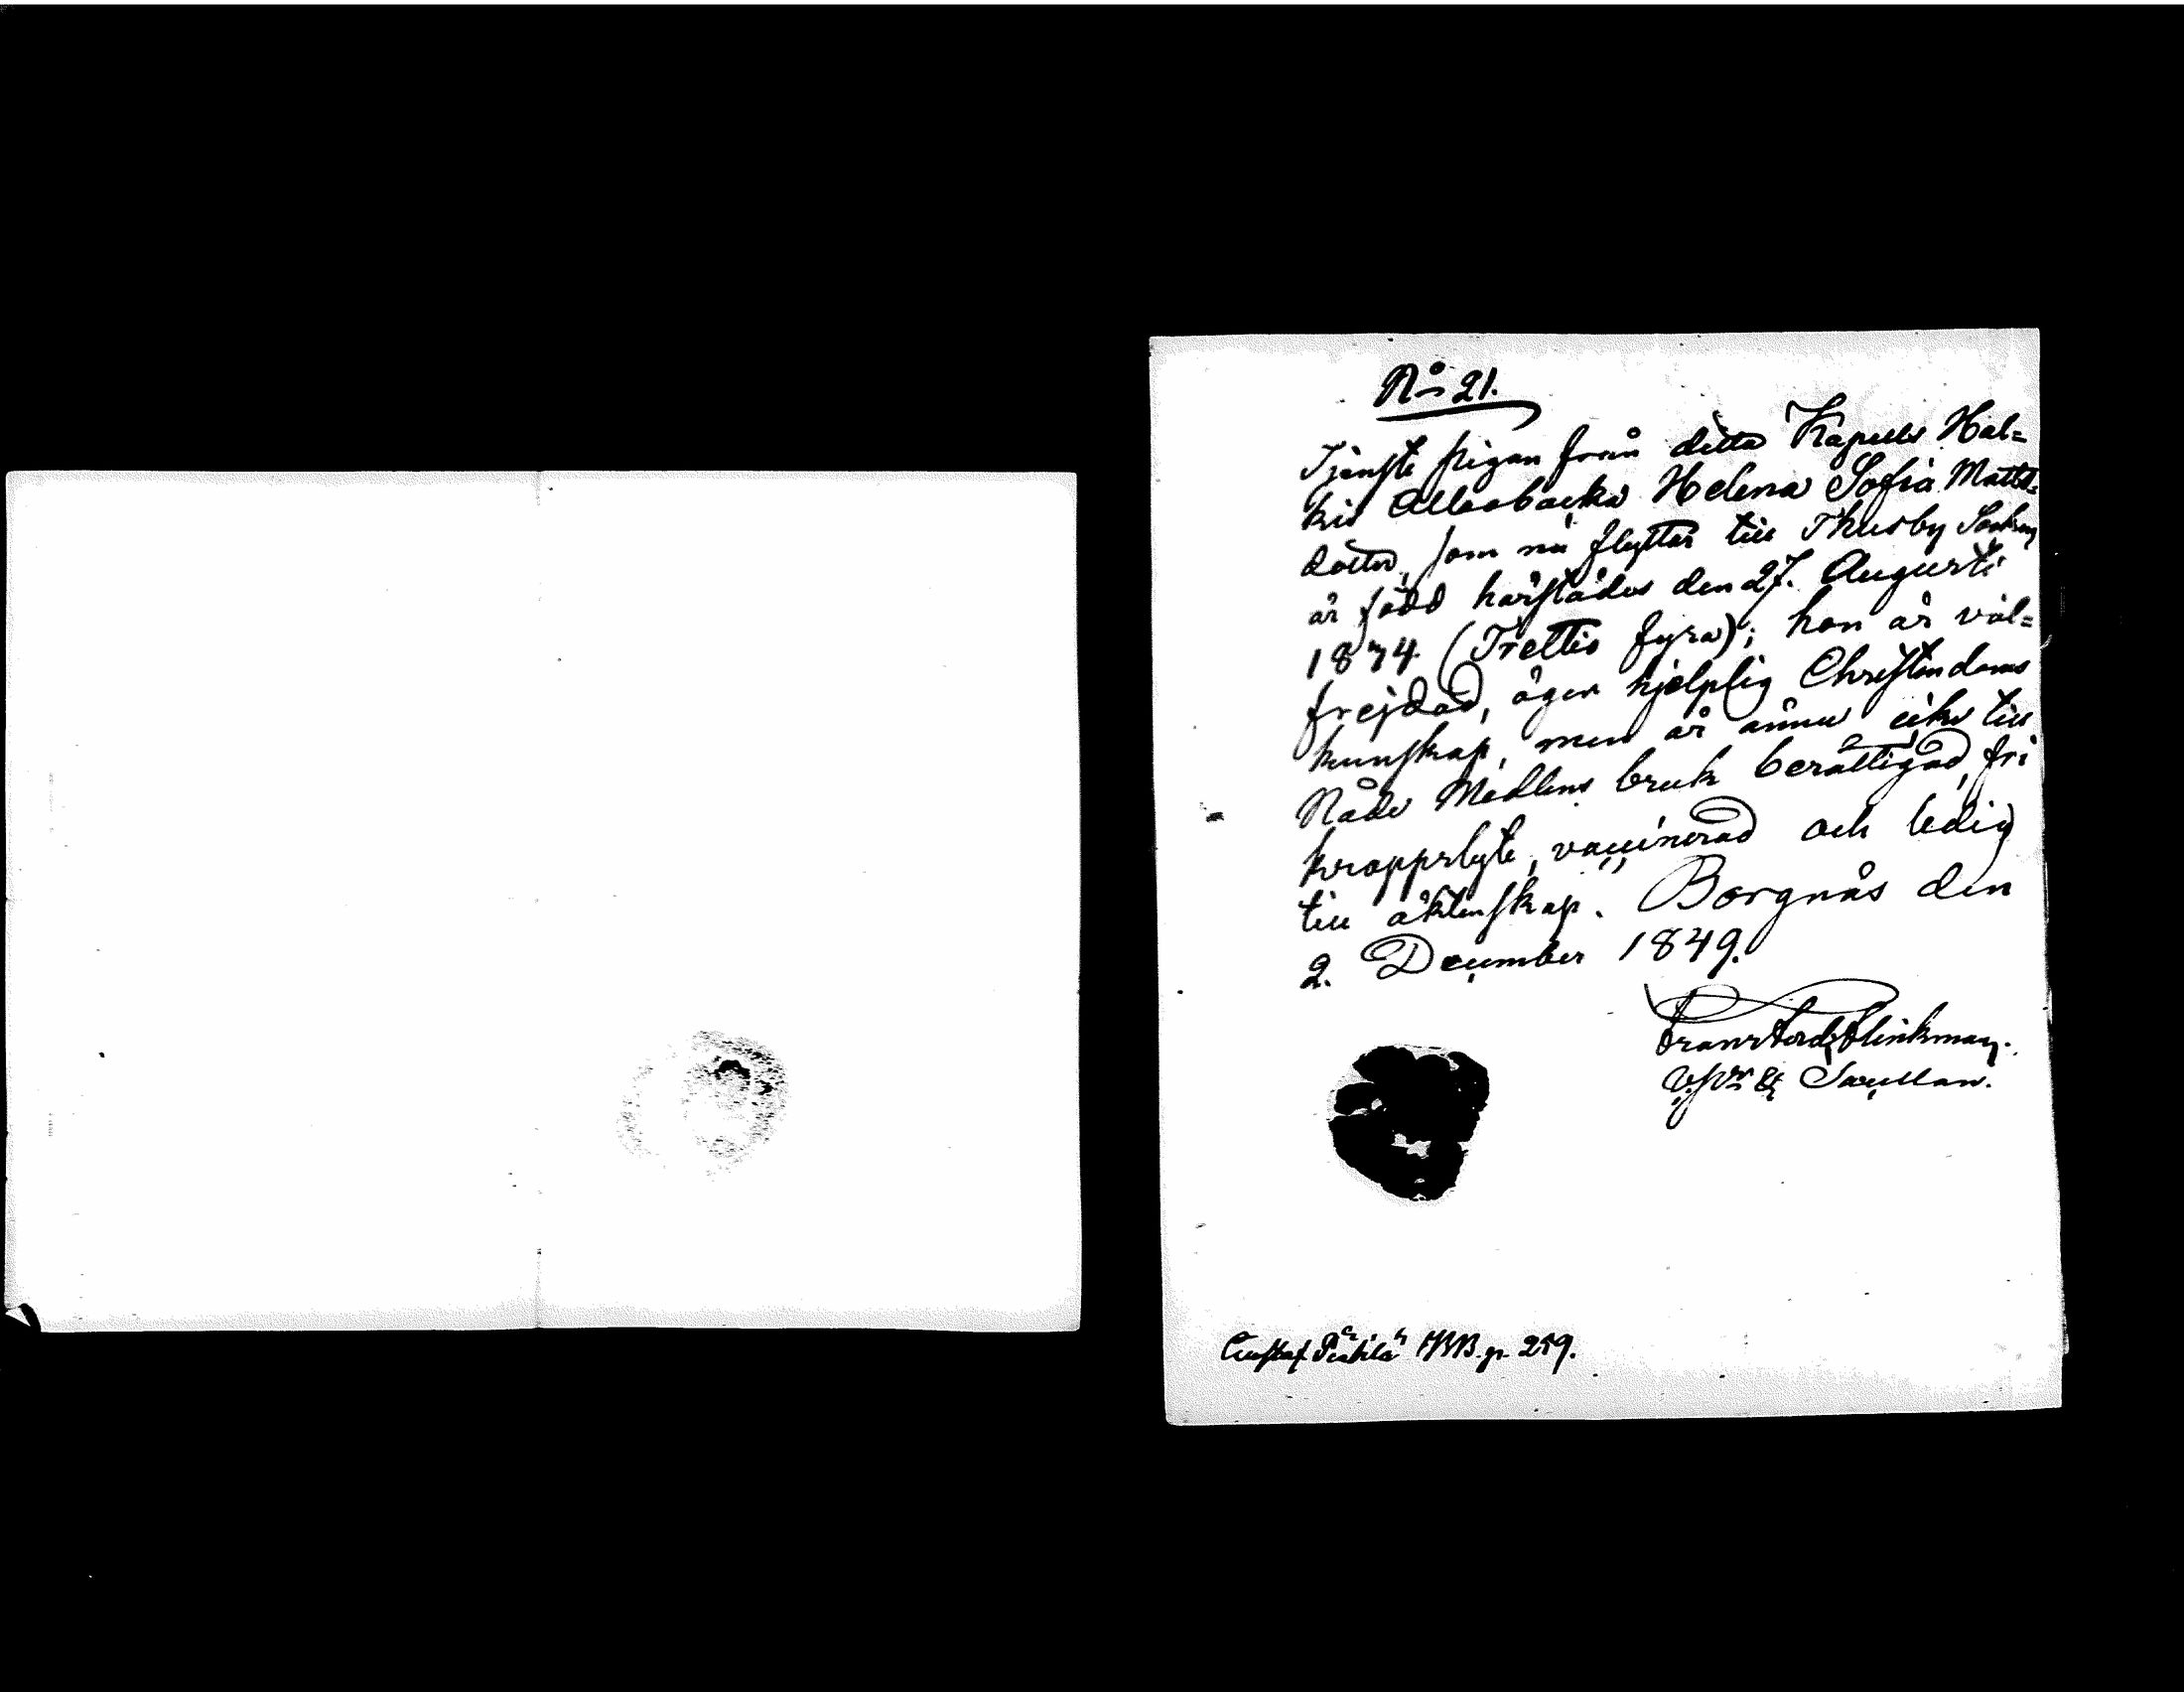 No 21.
Tjenste pigan från detta Kapells Hal=
kis Allasbacka Helena Sofia Matts=
dotter, som nu flyttar till Thusby Sochn
är född härstädes den 27. Augusti
1834 (Trettio fyra); hon är väl=
frejdad, äger hjelplig Christendoms
kunskap, men är ännu icke till
Nåde Medlens bruk berättigad, fri
kroppslyte, vaccinerad och ledig
till äktenskap. Borgnäs den
2. December 1849.
Frans Ferd. Flinkman.
V. Pr. & Sacellan.
Gustaf Pekkilä HBB. p. 259.